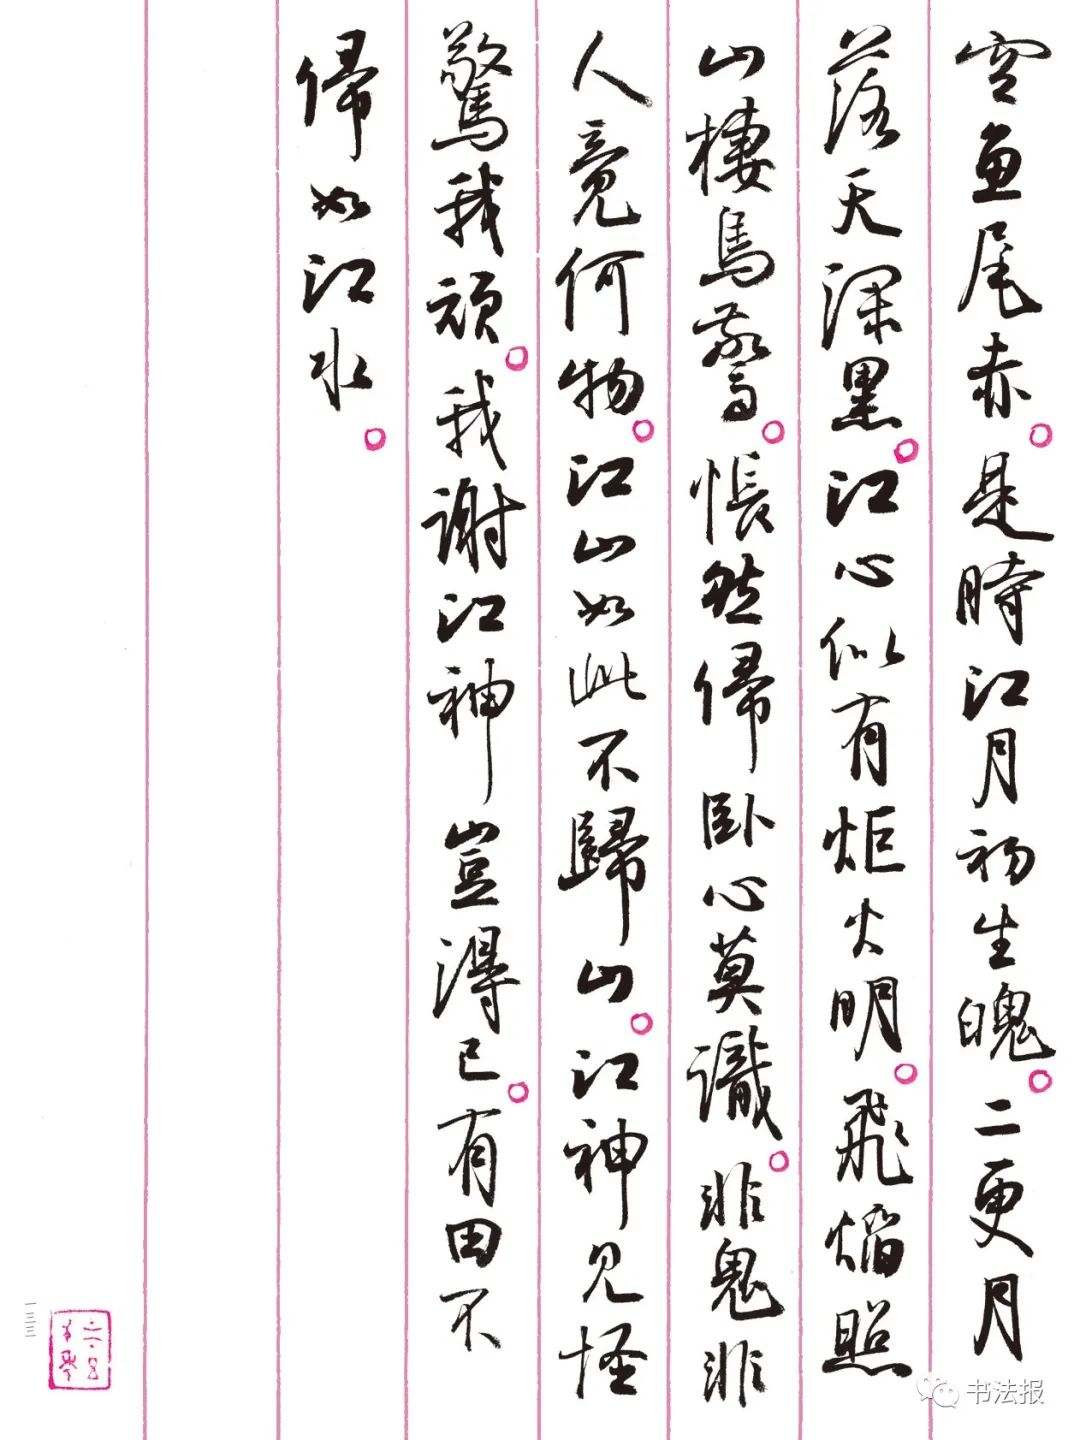 空魚尾赤。是時江月初生魄。二更月
落天深黑。江心似有炬火明。飛焰照
山棲鳥驚。悵然歸臥心莫識。非鬼非
人竟何物。江山如此不歸山。江神見怪
驚我頑。我謝江神豈得已。有田不
歸如江水。
一三三
书法报